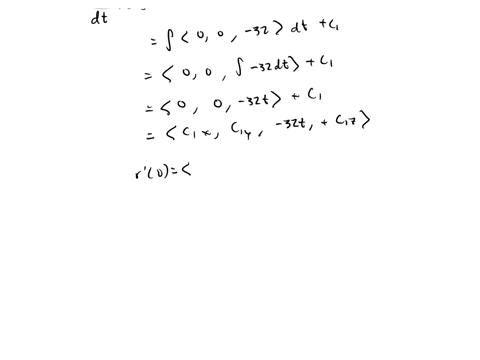 dt
= ∫ < 0, 0, -32 > dt + C₁
= < 0, 0, ∫ -32dt > + C₁
= < 0, 0, -32t > + C₁
= < C₁x, C₁y, -32t, + C₁z >
r'(0) = <